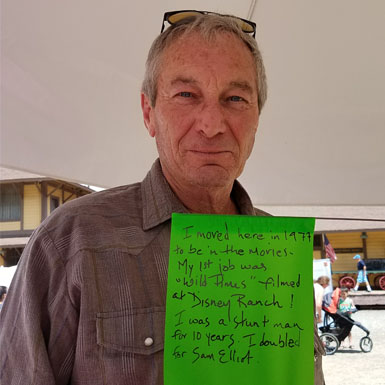 I moved here in 1977
to be in the Movies.
My 1st job was
"Wild Times" filmed
at Disney Ranch!
I was a stunt man
for 10 years. I doubled
for Sam Elliot.